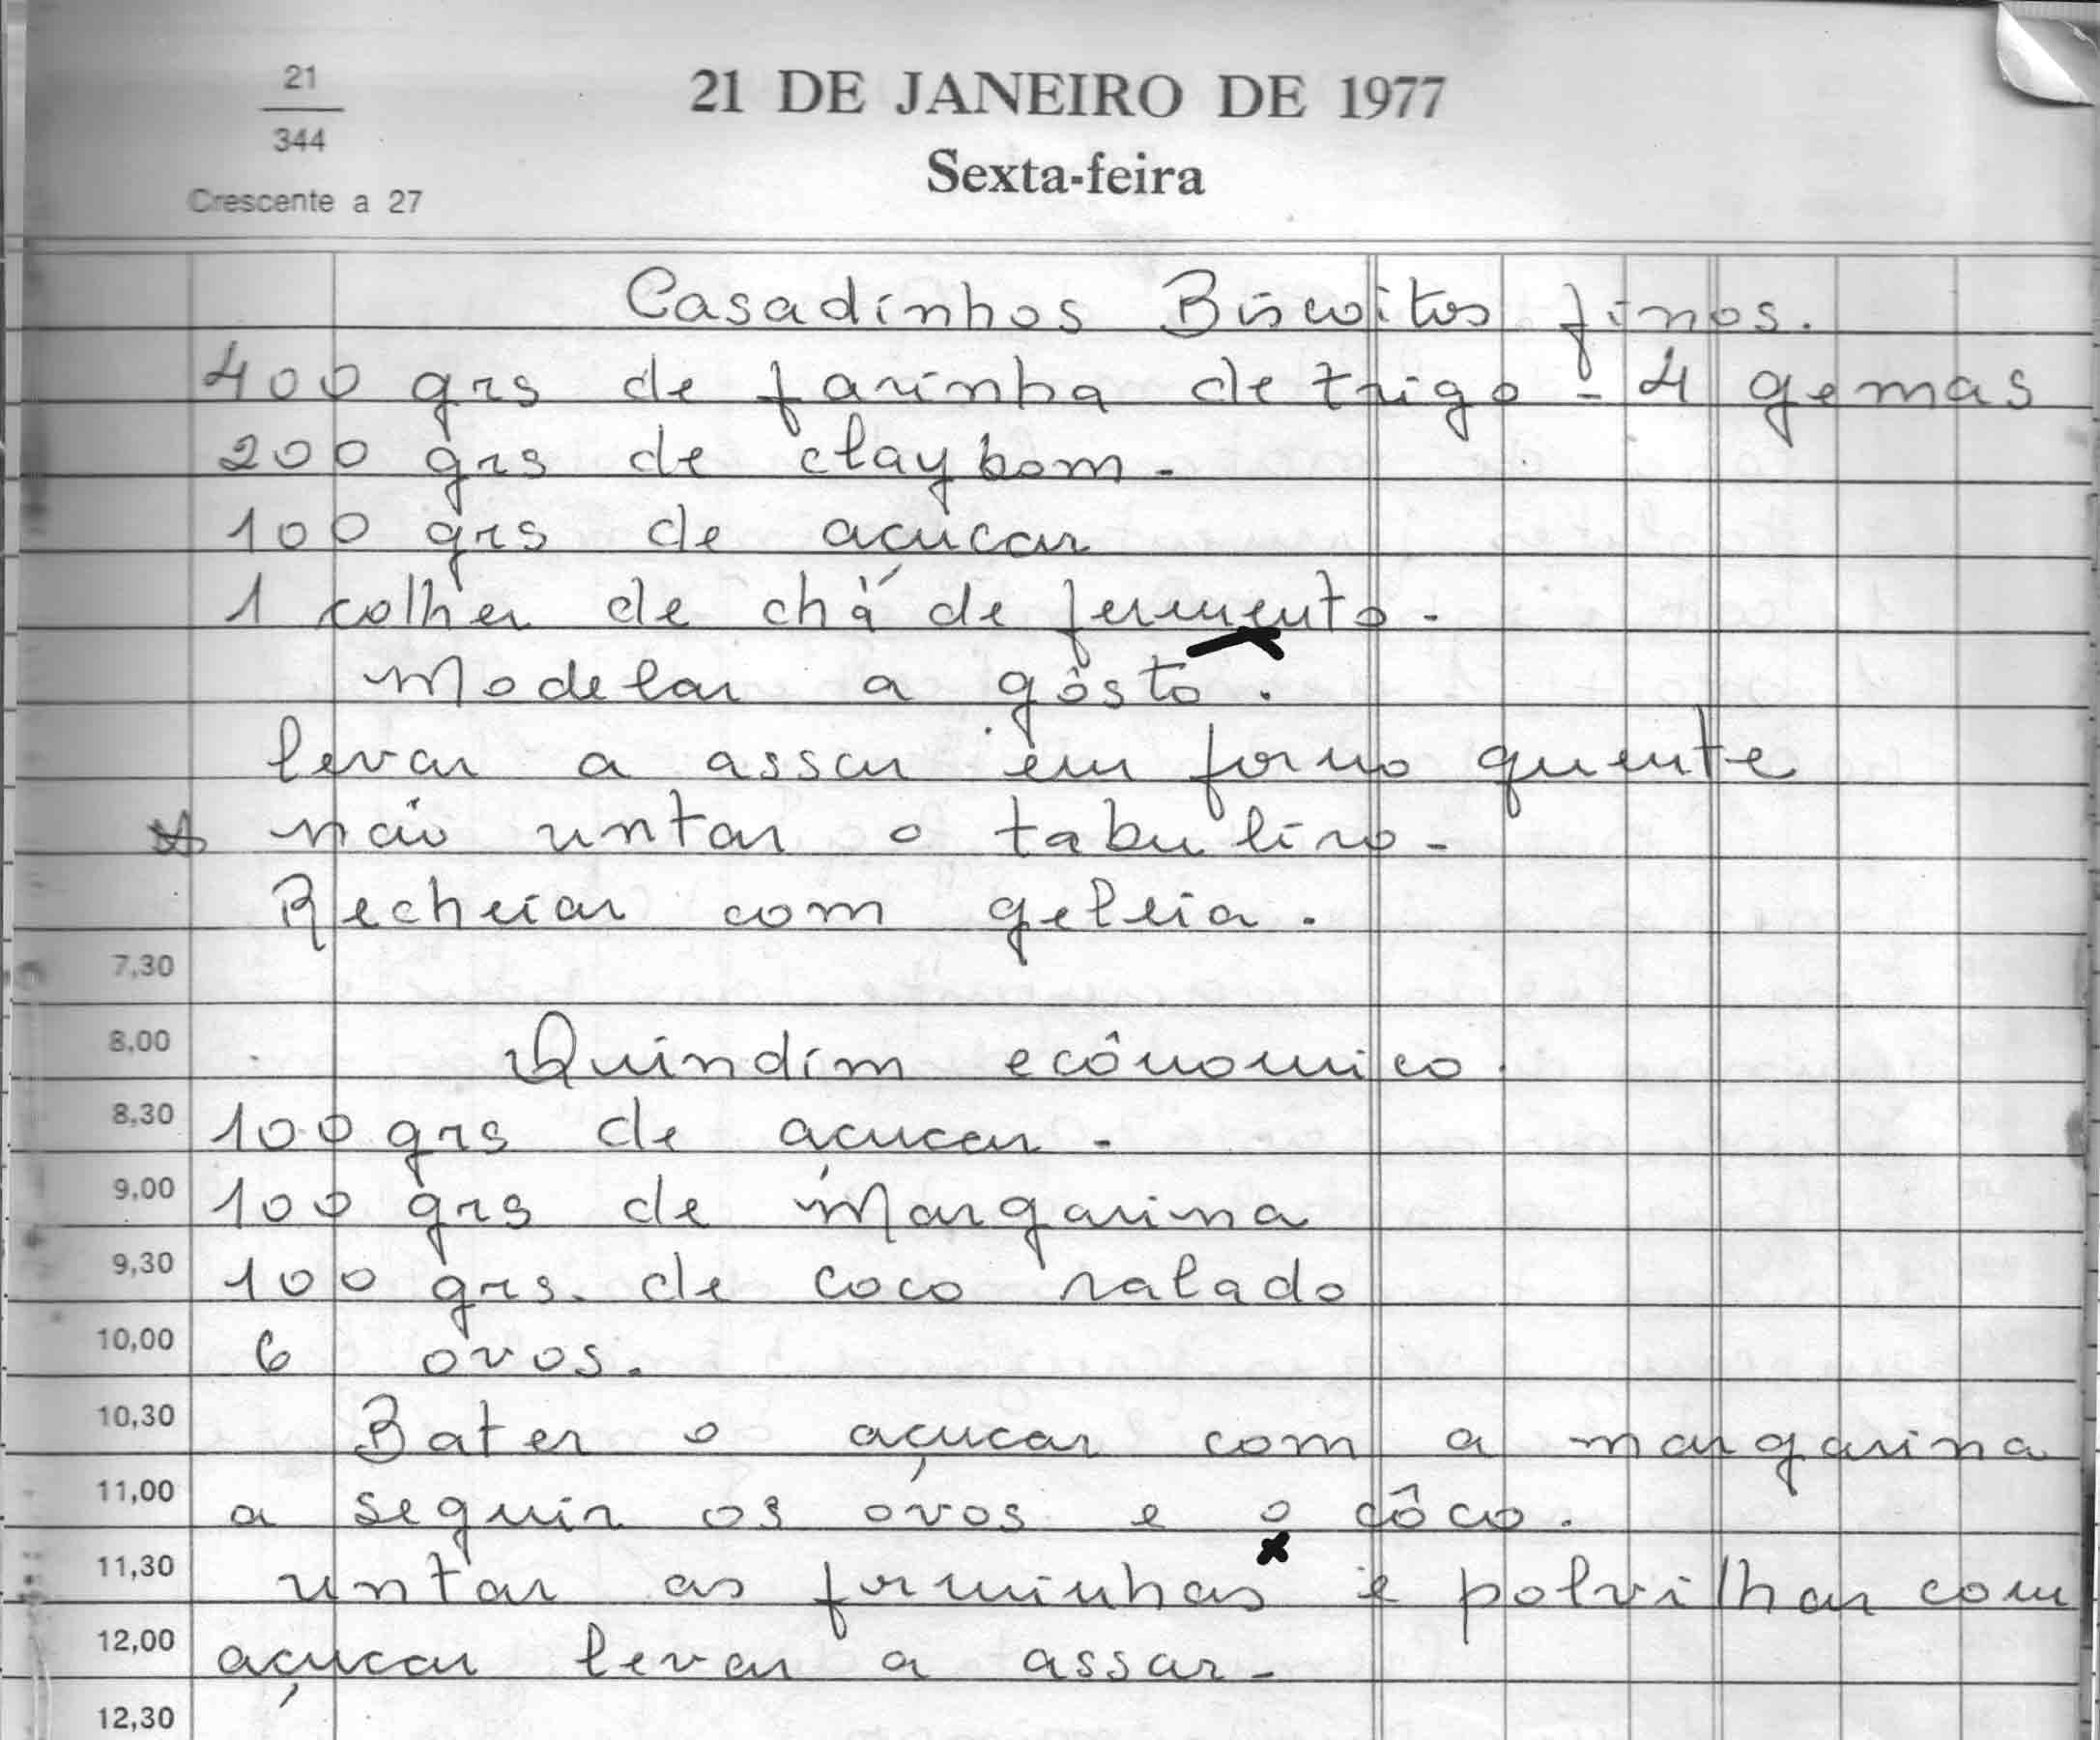 21
344
Crescente a 27
21 DE JANEIRO DE 1977
Sexta-feira
Casadinhos Biscoitos finos.
400 grs de farinha de trigo - 4 gemas
200 grs de claybom -
100 grs de açúcar
1 colher de chá de fermento -
Modelar a gôsto.
levar a assar em forno quente
não untar o tabuliro -
Recheiar com geleia.
7,30
8,00 Quindim ecônomico.
8,30 100 grs de açucar -
9,00 100 grs de Margarina
9,30 100 grs. de coco ralado
10,00 6 ovos.
10,30 Bater o açucar com a margarina
11,00 a seguir os ovos e o côco.
11,30 untar as forminhas e polvilhar com
12,00 açucar levar a assar -
12,30